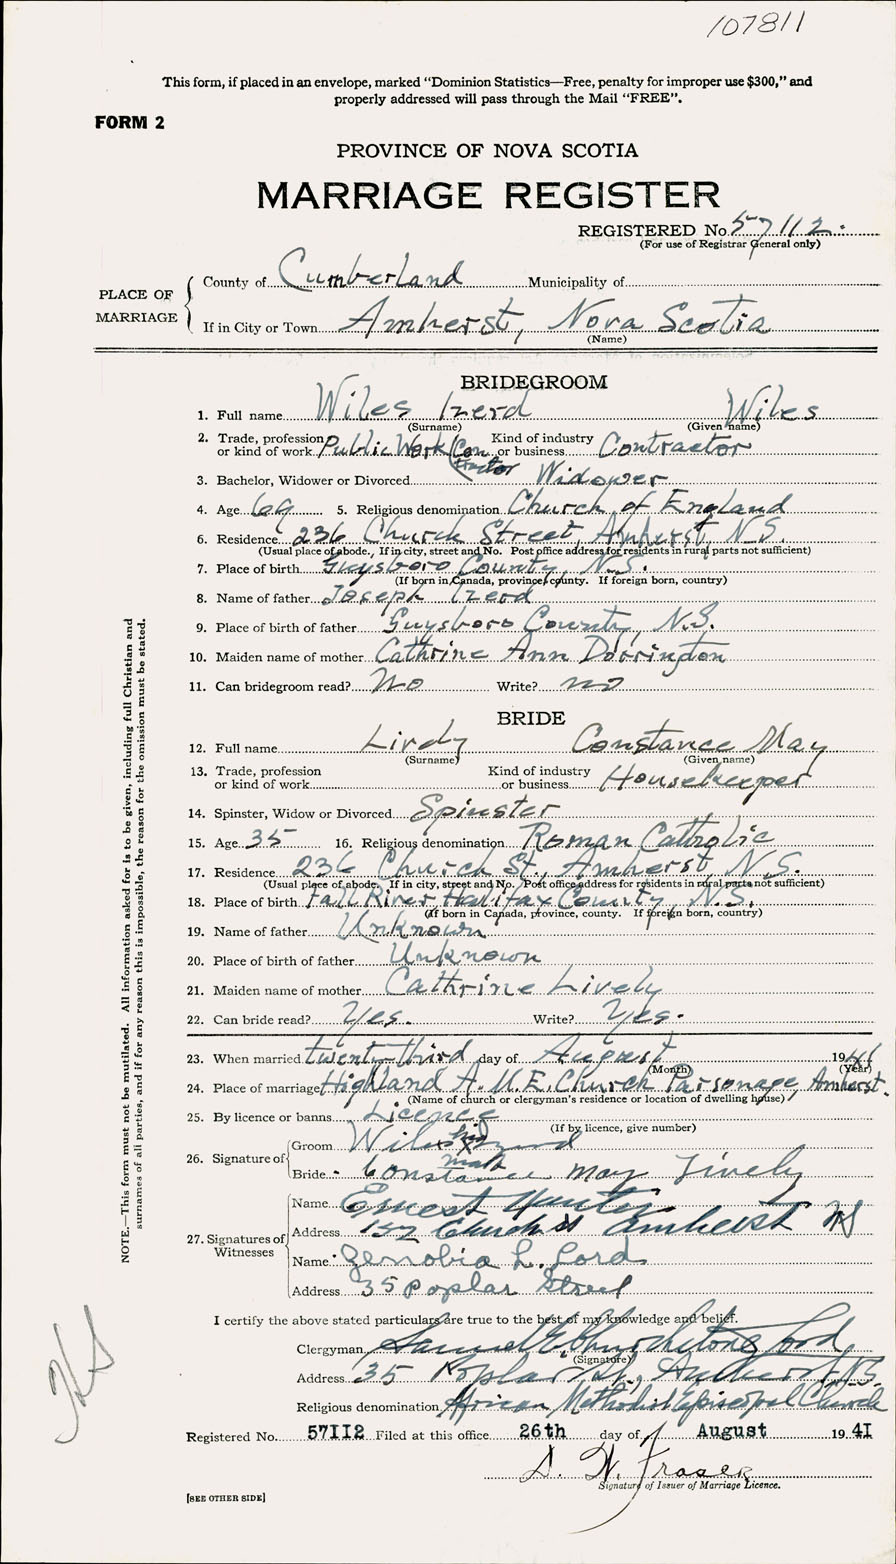 107811
This form, if placed in an envelope, marked "Dominion Statistics—Free, penalty for improper use $300," and
properly addressed will pass through the Mail "FREE".
FORM 2
PROVINCE OF NOVA SCOTIA
MARRIAGE REGISTER
REGISTERED No. 57112.
(For use of Registrar General only)
PLACE OF MARRIAGE
County of Cumberland Municipality of
If in City or Town Amherst, Nova Scotia
(Name)
BRIDEGROOM
1. Full name Wiles Izerd Wiles
(Surname) (Given name)
2. Trade, profession or kind of work Public Work (Contractor Kind of industry or business Contractor
3. Bachelor, Widower or Divorced Widower
4. Age 69 5. Religious denomination Church of England
6. Residence 236 Church Street, Amherst, N.S.
(Usual place of abode. If in city, street and No. Post office address for residents in rural parts not sufficient)
7. Place of birth Guysboro County, N.S.
(If born in Canada, province, county. If foreign born, country)
8. Name of father Joseph Izerd
9. Place of birth of father Guysboro County, N.S.
10. Maiden name of mother Cathrine Ann Dorrington
11. Can bridegroom read? No Write? no
BRIDE
12. Full name Livdy Constance May
(Surname) (Given name)
13. Trade, profession or kind of work Kind of industry or business Housekeeper
14. Spinster, Widow or Divorced Spinster
15. Age 35 16. Religious denomination Roman Catholic
17. Residence 236 Church St., Amherst N.S.
(Usual place of abode. If in city, street and No. Post office address for residents in rural parts not sufficient)
18. Place of birth Fall River Halifax County, N.S.
(If born in Canada, province, county. If foreign born, country)
19. Name of father Unknown
20. Place of birth of father Unknown
21. Maiden name of mother Cathrine Lively
22. Can bride read? Yes. Write? Yes.
23. When married twenty-third day of August 1941
(Month) (Year)
24. Place of marriage Highland A.M.E. Church Parsonage, Amherst.
(Name of church or clergyman's residence or location of dwelling house)
25. By licence or banns Licence
(If by licence, give number)
26. Signature of Groom Wiles his x mark Izerd
Bride Constance May Lively
27. Signatures of Witnesses
Name Ernest
Address 152 Church St Amherst NS
Name Zenobia L. Lord
Address 35 Poplar Street
I certify the above stated particulars are true to the best of my knowledge and belief.
Clergyman Samuel E. Churchstone Lord
(Signature)
Address 35 Poplar St., Amherst, N.S.
Religious denomination African Methodist Episcopal Church
Registered No. 57112 Filed at this office 26th day of August 1941
D. W. Fraser
Signature of Issuer of Marriage Licence.
[SEE OTHER SIDE]
NOTE.—This form must not be mutilated. All information asked for is to be given, including full Christian and
surnames of all parties, and if for any reason this is impossible, the reason for the omission must be stated.